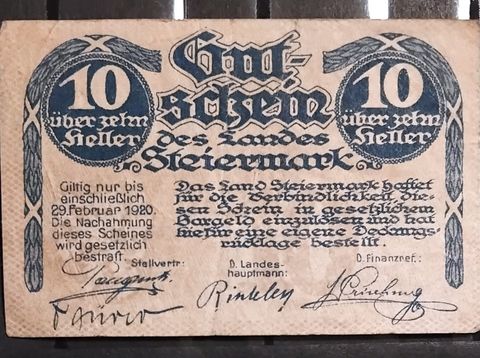 Gut-
schein
des Landes
Steiermark
10
über zehn
Heller
10
über zehn
Heller
Giltig nur bis
einschließlich
29. Februar 1920.
Die Nachahmung
dieses Scheines
wird gesetzlich
bestraft.
Das Land Steiermark haftet
für die Verbindlichkeit, die-
sen Schein in gesetzlichem
Bargeld einzulösen und hat
hiefür eine eigene Deckungs-
rücklage bestellt.
Stellvertr:
D. Landes-
hauptmann:
D. Finanzref.:
Rintelen